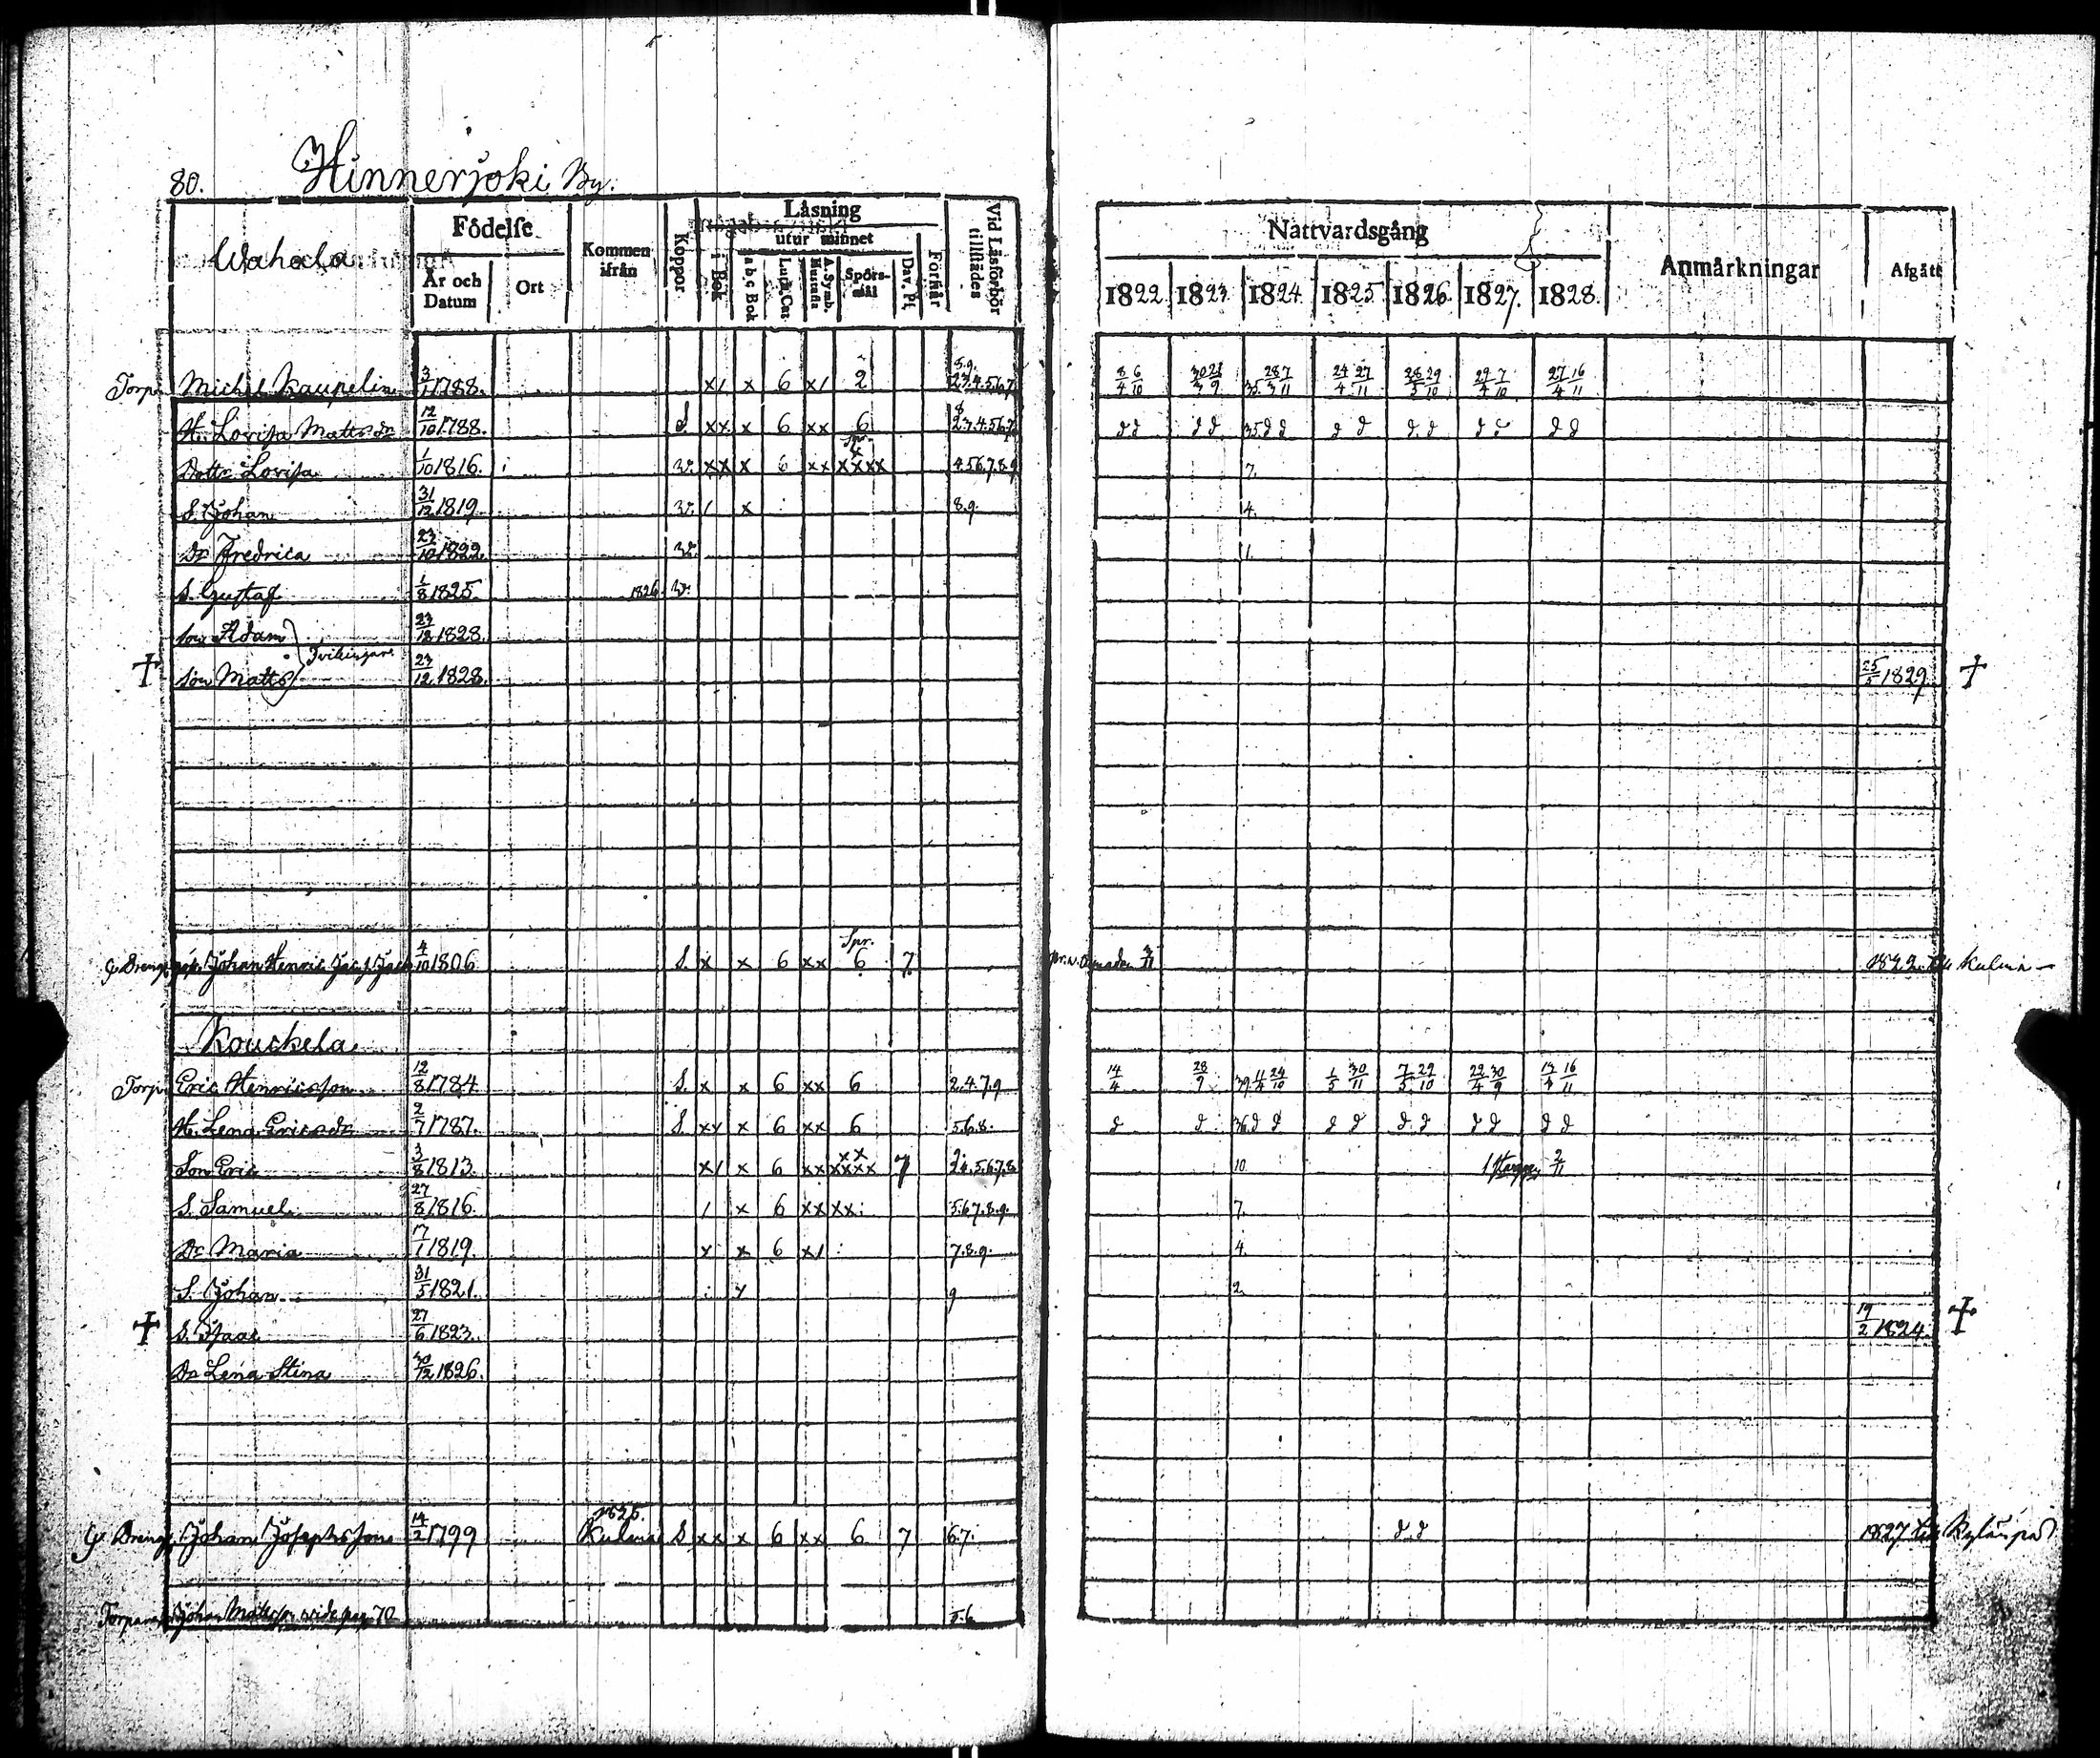 80. Hinnerjoki By.
Wahala
Födelse
År och Datum
Ort
Kommen ifrån
Koppor
Läsning
i Bok
utur minnet
a b c Bok
Luth. Cat.
A. Symb. Hustafla
Spörsmål
Dav. Ps.
Förhår
Vid Läsförhör tillstädes
Nattvardsgång
1822. 1823. 1824. 1825. 1826. 1827. 1828.
Anmärkningar
Afgått
Torp. Michel Kaupelin 3/1 1788. x/ x 6 x/ 2 8.9. 2.3.4.5.6.7 8/4 6/10 30/3 21/9 35. 28/3 7/11 24/4 27/11 28/5 29/10 29/4 7/10 27/4 16/11
H. Lovisa Matts dr 12/10 1788. S xx x 6 xx 6 8 2.3.4.5.6.7 d d d d 35. d d d d d d d d d d
Dottr Lovisa 1/10 1816. w. xx x 6 xx xxxx 4.5.6.7.8.9 7.
S. Johan 31/12 1819. w. / x 8.9. 4.
Dr Fredrica 23/10 1822. w. 1.
S. Gustaf 1/8 1825. 1826. w.
Son Adam 23/12 1828.
† Son Matts 23/12 1828. 25/5 1829. †
Johan Henric 4/10 1806 S. x x 6 xx Spr. 6 7. 3/11 1822. till Kulma
Kouckela
Torp. Eric Henricsson 12/8 1784 S. x x 6 xx 6 2.4.7.9 14/4 28/9 39. 11/4 24/10 1/5 30/11 7/5 29/10 22/4 30/9 13/4 16/11
H. Lena Ericsdr 2/7 1787. S xx x 6 xx 6 5.6.8. d d 36. d d d d d d d d d d
Son Eric 3/8 1813. x/ x 6 xx xxxx 7 2.4.5.6.7.8 10. 2/11
S. Samuel 27/8 1816. / x 6 xx xx. 5.6.7.8.9. 7.
Dr Maria 17/1 1819. x x 6 x/ 7.8.9. 4.
S. Johan 31/5 1821. x 9 2.
† S. Isaac 27/6 1823. 19/2 1824. †
Dr Lena Stina 30/12 1826.
Johan Josephsson 14/2 1799 1825. Kulma S xx x 6 xx 6 7 6.7. d d 1827 till
Torparen Johan Mattsson vide pag. 70 5.6